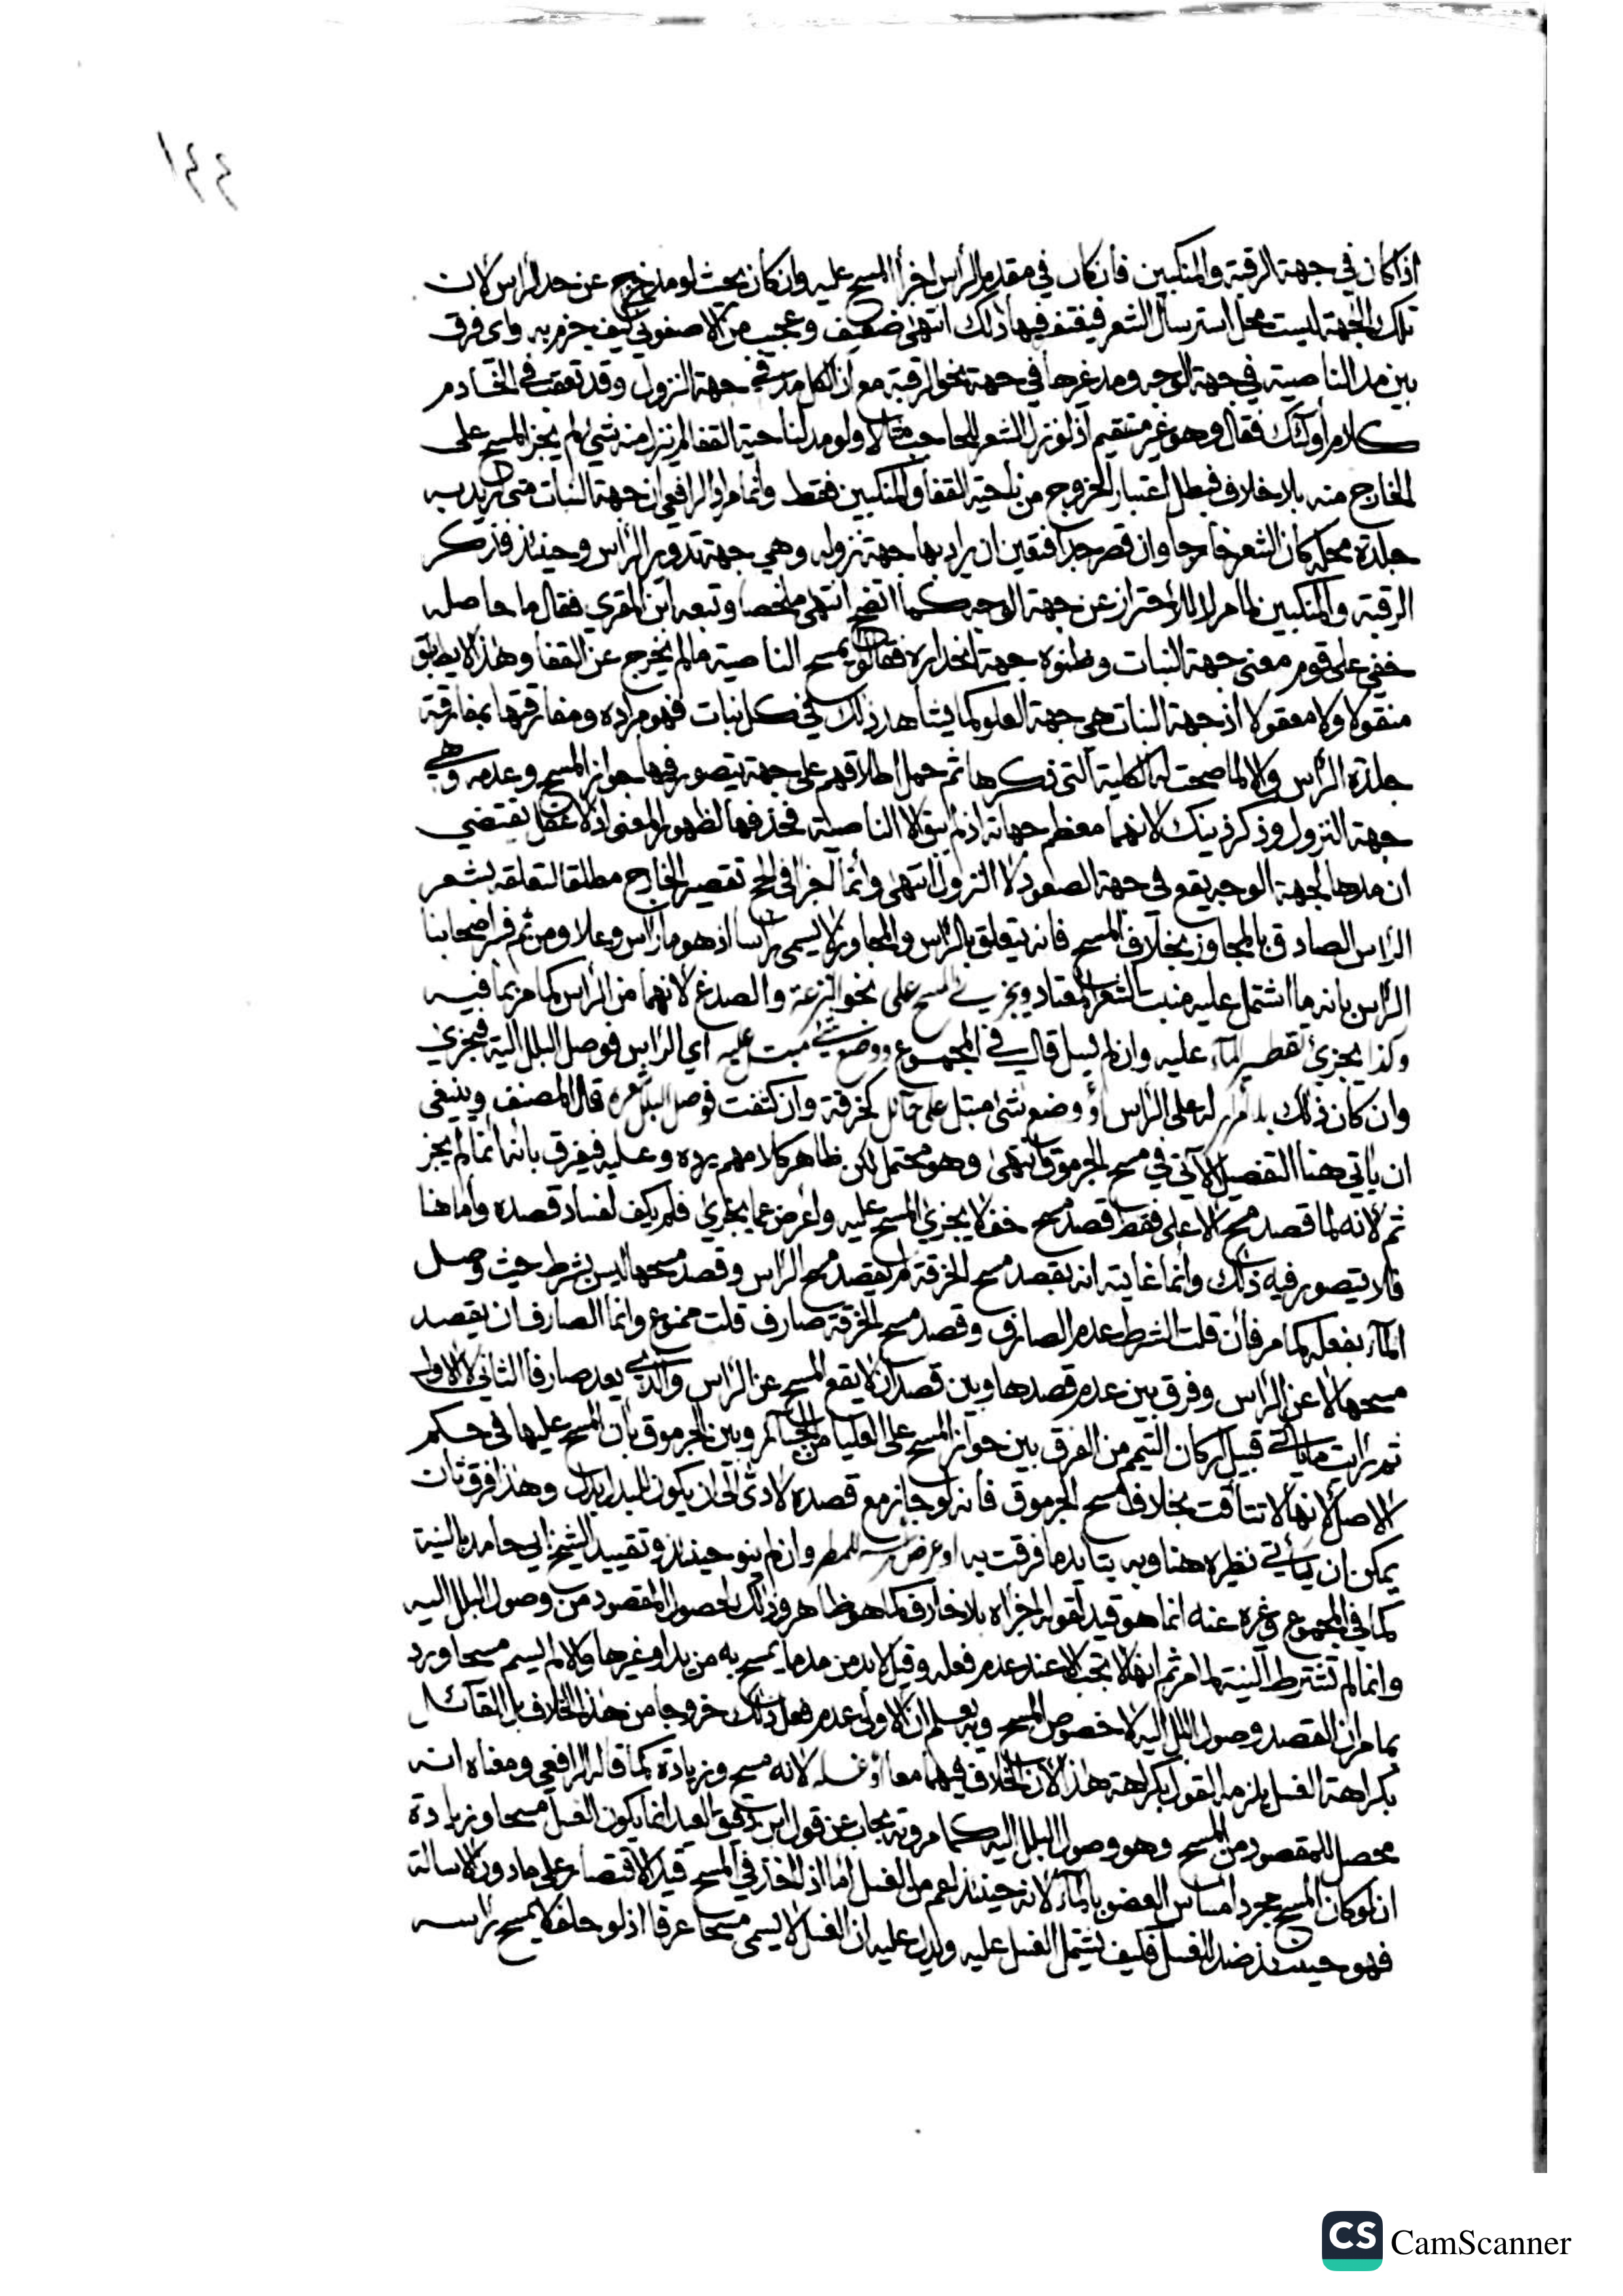 ١٤٤
اذا كان في جهة الرقبة والمنكبين فان كان في مقدم الراس اجزأ المسح عليه وان كان بحيث لو مد خرج عن حد الراس لان
تلك الجهة ليست محل استرسال الشعر فيغتفر فيها ذلك انتهى ضعيف وعجيب من الاصفوني كيف جزم به واى فرق
بين مد الناصية في جهة الوجه ومد غيرها في جهة نحو الرقبة مع ان الكل مد في جهة النزول وقد تعقب في الخادم
كلام أولئك فقال وهو غير مستقيم اذ لو نزل الشعر للحاجب مثلا ولو مد لناحية القفا لم ينزل منه شئ لم يجز المسح على
الخارج منه بلا خلاف فبطل اعتبار الخروج من ناحية القفا والمنكبين فقط وانما مراد الرافعى ان جهة النبات متى اريد به
جلدة محله كان الشعر خارجا وان قصر جدا فتعين ان يراد بها جهة نزوله وهي جهة تدوير الراس وحينئذ فذكر
الرقبة والمنكبين لما مر لا للاحتراز عن جهة الوجه كما اتضح انتهى ملخصا وتبعه ابن المقرى فقال ما حاصله
خفي على قوم معنى جهة النبات وظنوه جهة انحداره فقالوا يمسح الناصية ما لم يخرج عن القفا وهذا لا يطابق
منقولا ولا معقولا اذ جهة النبات هي جهة العلو كما يشاهد ذلك في كل نبات فهو مراده ومفارقتها بمفارقة
جلدة الراس والا لما صحت له الكلية التى ذكرها ثم حمل اطلاقهم على جهة يتصور فيها جواز المسح وعدمه وهي
جهة النزول وذكر ذينك لانهما معظم جهاته اذ لم يبق الا الناصية فحذفها لظهور المعنى اذ لا عقل يقتضي
ان مدها لجهة الوجه يقع في جهة الصعود لا النزول انتهى وانما اجزأ في الحج تقصير الخارج مطلقا لتعلقه بشعر
الراس الصادق بالمجاوز بخلاف المسح فانه يتعلق بالراس والمجاوز لا يسمى راسا اذ هو ما راس وعلا ومن ثم فسر اصحابنا
الراس بانه ما اشتمل عليه منبت الشعر المعتاد ويجزي المسح على نحو النزعة والصدغ لانهما من الراس كما مر بما فيه
وكذا يجزئ تقطير الماء عليه وان لم يسل قال في المجموع ووضع شئ مبتل عليه اي الراس فوصل البلل اليه فيجزي
وان كان ذلك بلا امرار له على الراس أو وضع شئ مبتل على حائل كخرقة وان كثفت فوصل البلل شعره قال المصنف وينبغي
ان يأتي هنا التفصيل الآتي في مسح الجرموق انتهى وهو محتمل لكن ظاهر كلامهم يرده وعليه فيفرق بانه انما لم يجز
ثم لانه لما قصد مسح الاعلى فقط قصد مسح خف لا يجزي المسح عليه واعرض عما يجزي فلم يكف لفساد قصده واما هنا
فلا يتصور فيه ذلك وانما غايته انه بقصد مسح الخرقة لم يقصد مسح الراس وقصد مسحها ليس بشرط حيث وصل
الماء بفعله كما مر فان قلت الشرط عدم الصارف وقصد مسح الخرقة صارف قلت ممنوع وانما الصارف ان يقصد
مسحها لا عن الراس وفرق بين عدم قصدها وبين قصد ان لا يقع المسح عن الراس والذي يعد صارفا الثاني لا الاول
ثم رايت ما ياتي قبيل اركان التيمم من الفرق بين جواز المسح على العليا من الجبائر وبين الجرموق بأن المسح عليها في حكم
الاصل لانها لا تتاقت بخلاف مسح الجرموق فانه لو جاز مع قصده لادى الى ان يكون للبدل بدل وهذا فرق ثان
يمكن ان يأتي نظيره هنا وبه يتايد ما فرقت به او عرض راسه للمطر وان لم ينو حينئذ وتقييد الشيخ ابي حامد بالنية
كما في المجموع وغيره عنه انما هو قيد لقوله اجزأه بلا خلاف كما هو ظاهر وذلك لحصول المقصود من وصول البلل اليه
وانما لم تشترط النية لما مر ثم انها لا تجب الا عند عدم فعله وقيل لا بد من مد ما يمسح به من يد او غيرها والا لم يسم مسحا ورد
بما مر ان القصد وصول البلل اليه لا خصوص المسح وبه يعلم ان الاولى عدم فعل ذلك خروجا من هذا الخلاف بل القائل
بكراهة الغسل يلزمه القول بكراهة هذا لان الخلاف فيهما معا أو غسله لانه مسح وزيادة كما قاله الرافعي ومعناه انه
محصل للمقصود من المسح وهو وصول البلل اليه كما مر وبه يجاب عن قول ابن دقيق العيد انما يكون الغسل مسحا وزيادة
ان لو كان المسح مجرد امساس العضو بالماء لانه حينئذ اعم من الغسل اما اذا اخذ في المسح قيد الاقتصار على ما دون الاسالة
فهو حينئذ ضد الغسل فكيف يشتمل الغسل عليه ويدل عليه ان الغسل لا يسمى مسحا عرفا اذ لو حلف لا يمسح راسه
CS CamScanner